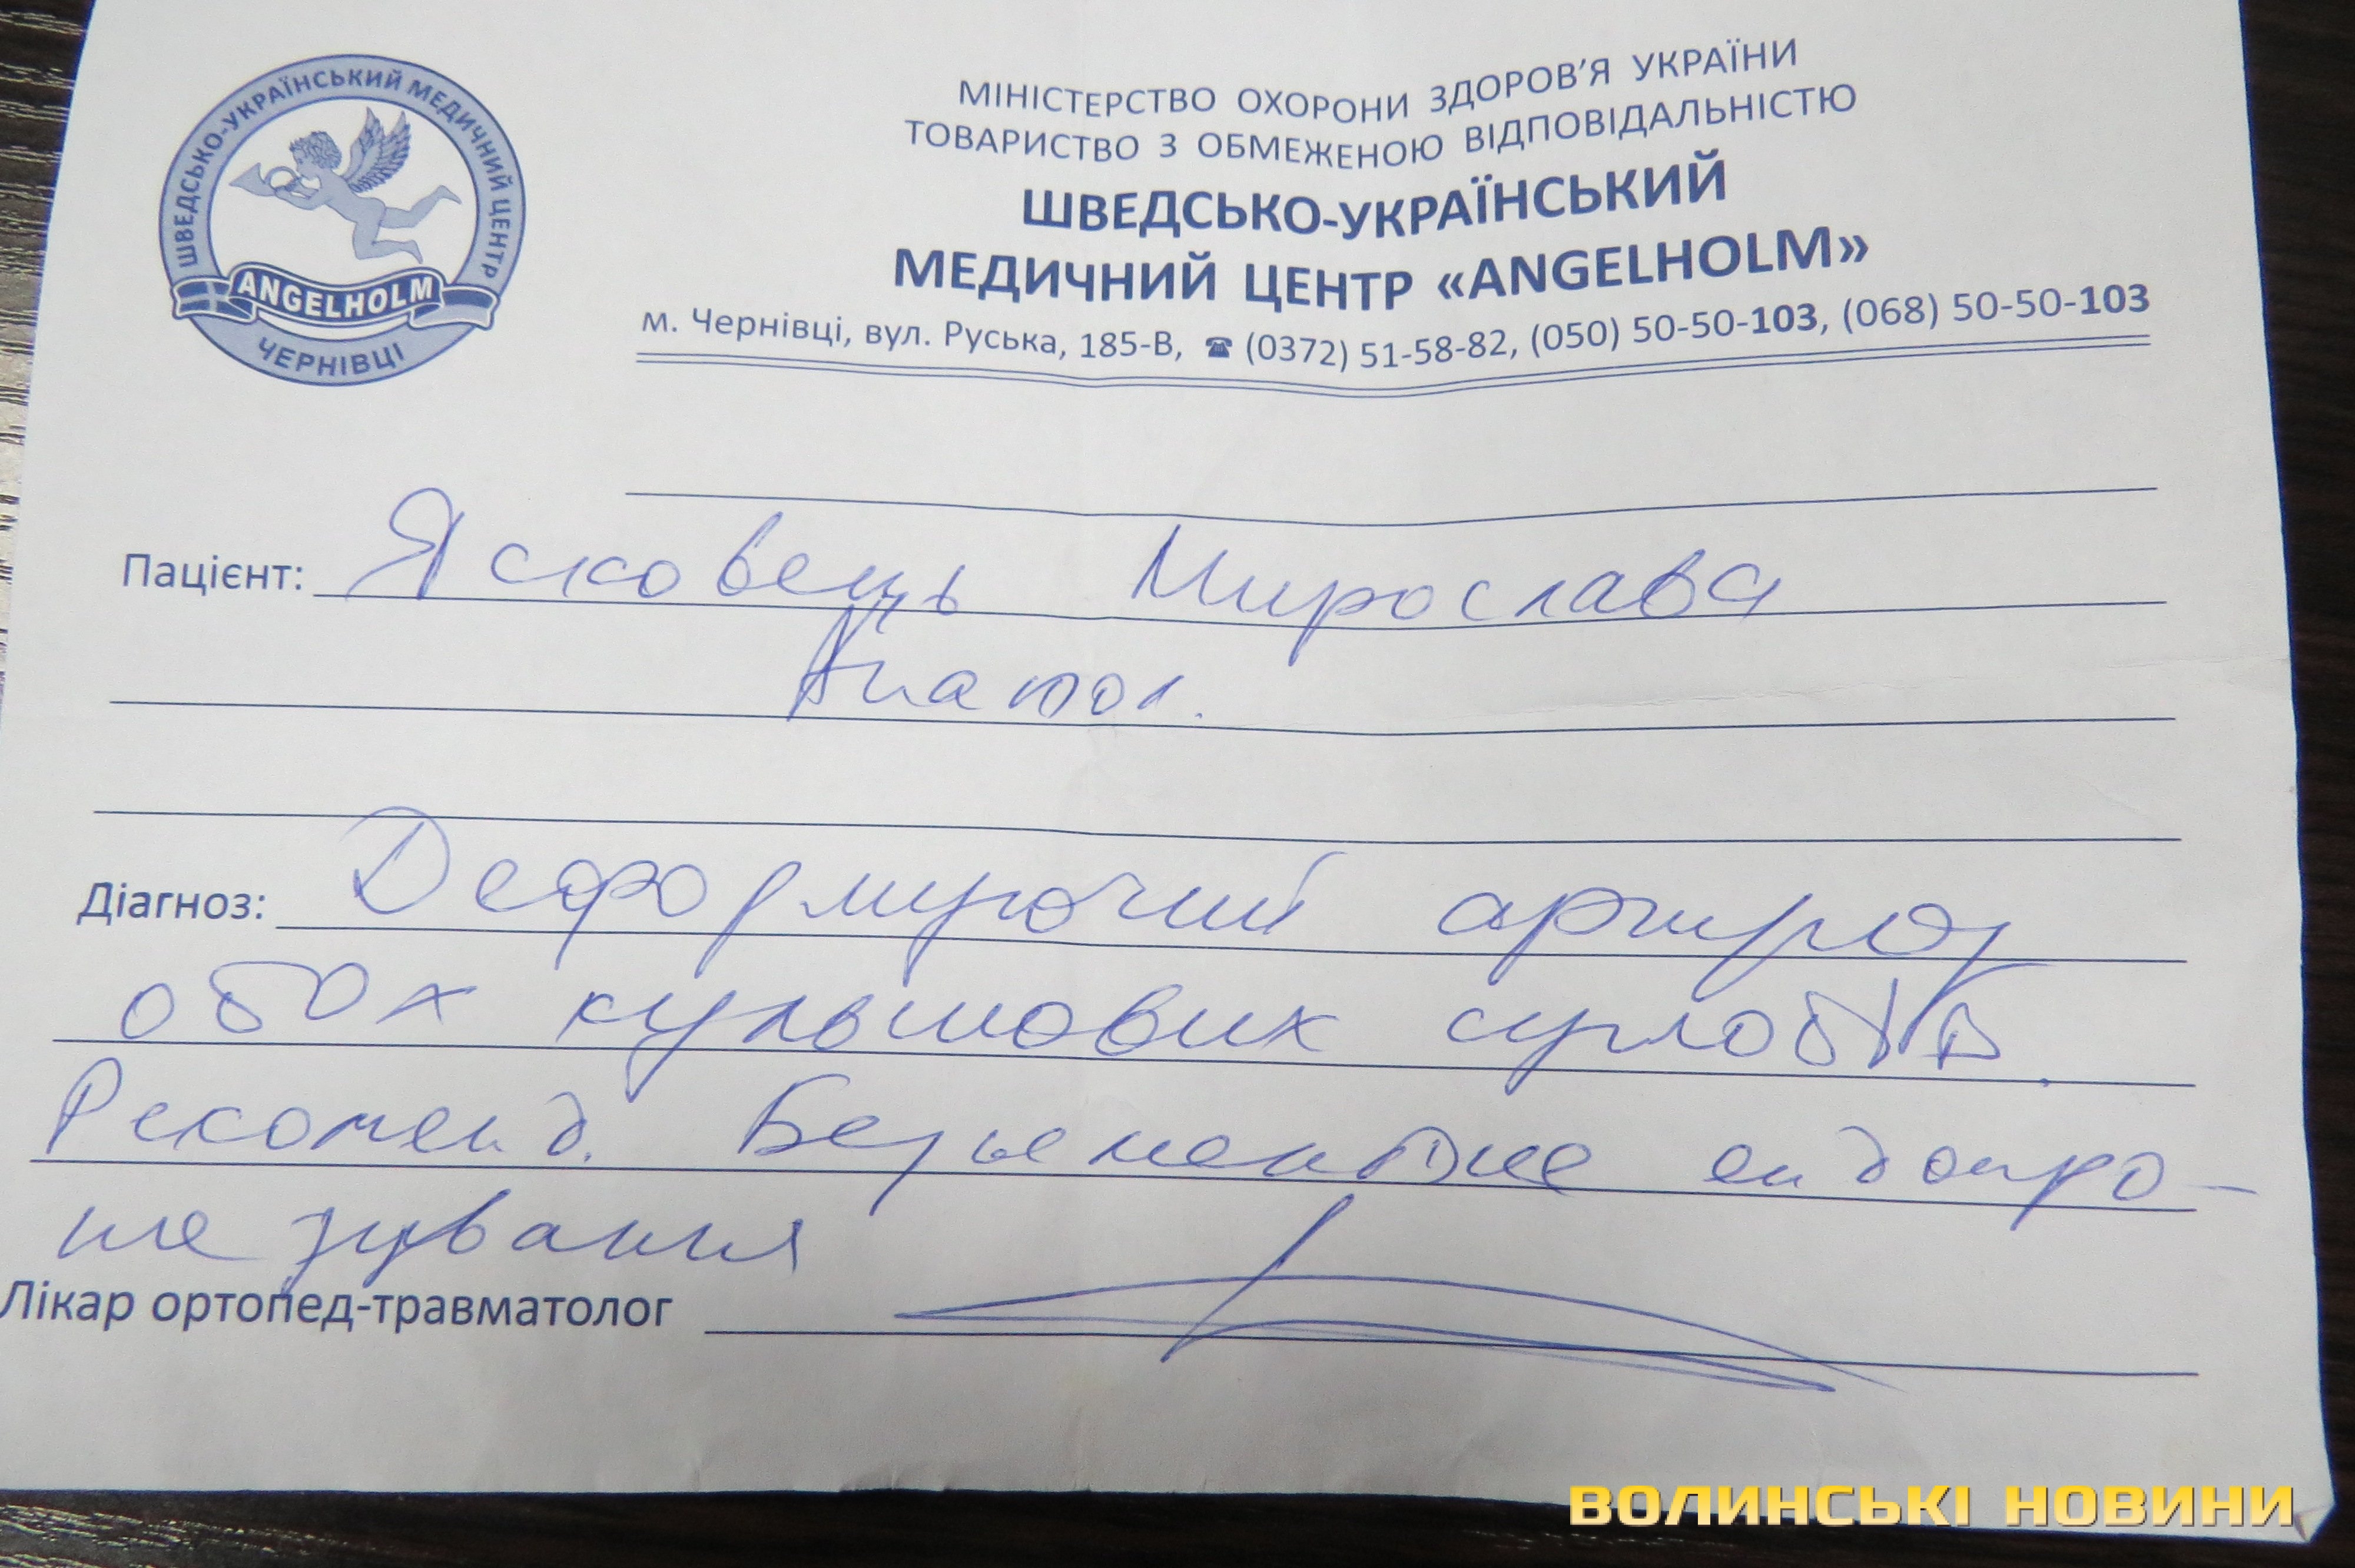 ШВЕДСЬКО-УКРАЇНСЬКИЙ МЕДИЧНИЙ ЦЕНТР
ANGELHOLM
ЧЕРНІВЦІ
МІНІСТЕРСТВО ОХОРОНИ ЗДОРОВ'Я УКРАЇНИ
ТОВАРИСТВО З ОБМЕЖЕНОЮ ВІДПОВІДАЛЬНІСТЮ
ШВЕДСЬКО-УКРАЇНСЬКИЙ
МЕДИЧНИЙ ЦЕНТР «ANGELHOLM»
м. Чернівці, вул. Руська, 185-В, ☎ (0372) 51-58-82, (050) 50-50-103, (068) 50-50-103
Пацієнт: Ясковець Мирослава
Анатол.
Діагноз: Деформуючий артроз
обох кульшових суглобів.
Рекоменд. Безцементне ендопро-
тезування
Лікар ортопед-травматолог
ВОЛИНСЬКІ НОВИНИ